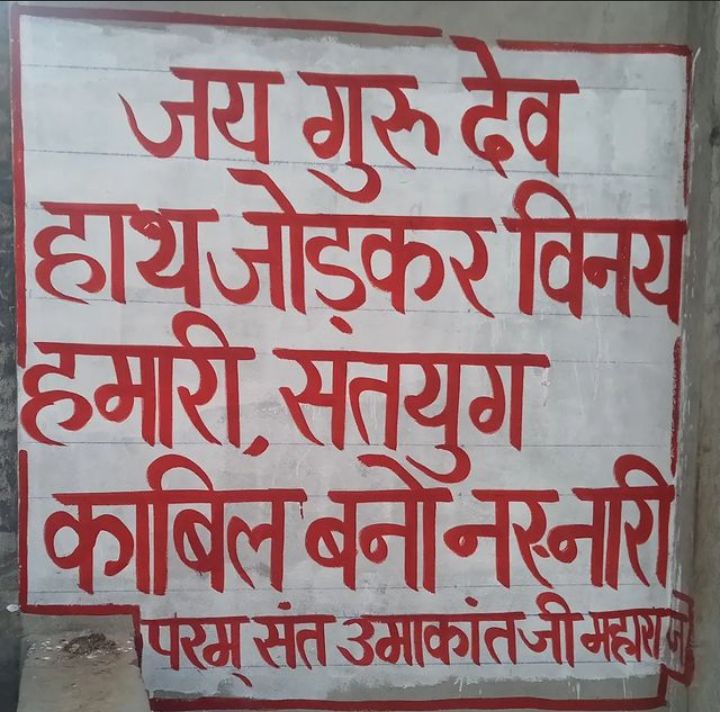 जय गुरु देव
हाथ जोड़कर विनय
हमारी, संतयुग
काबिल बनो नर-नारी
परम् संत उमाकांत जी महाराज